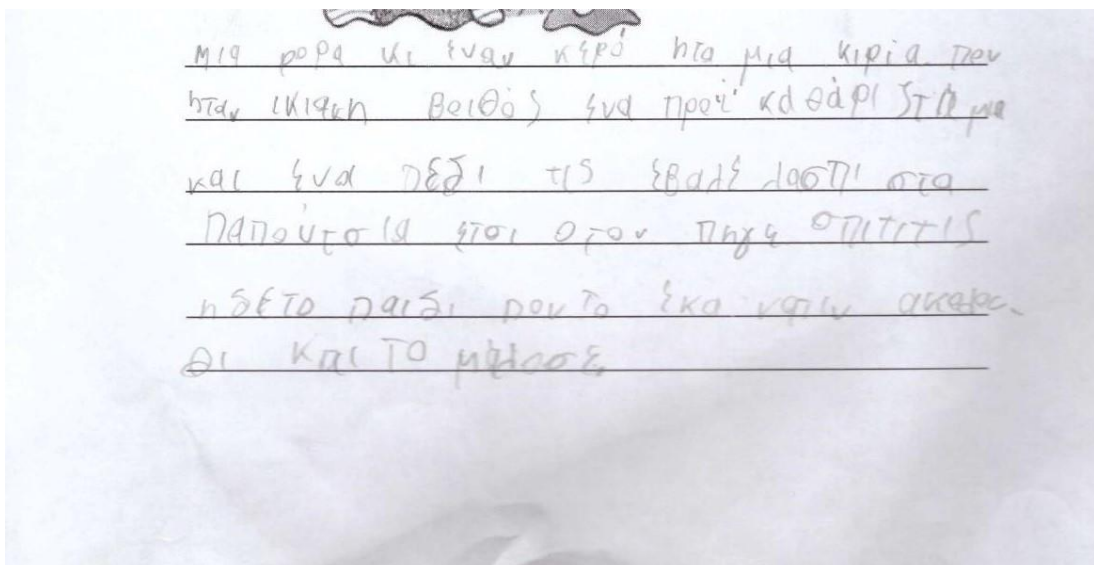 μια φορα κι έναν κερό ητα μια κιρία που
ηταν ικιακη βοιθός ένα προί καθάριζε
και ένα πεδι τις έβαλε λασπι στα
παπούτσια έτσι οταν πηγε σπιτιτις
ηδε το παιδι που το έκα
και το μάλοσε